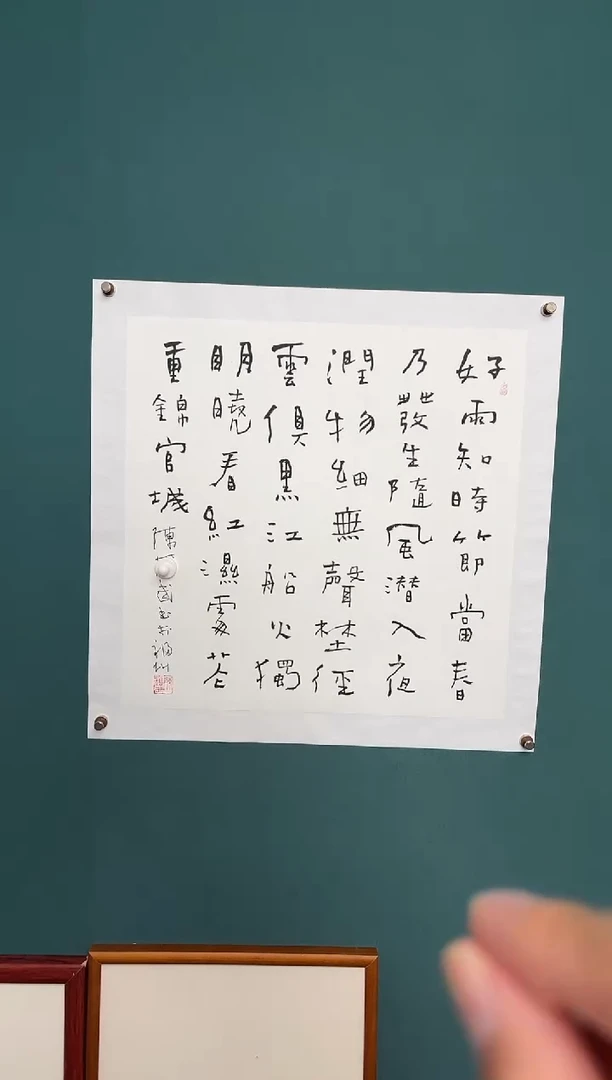 好雨知時節當春
乃發生隨風潜入夜
潤物細無聲埜徑
雲俱黑江船火獨
明曉看紅濕處花
重錦官城 陳 國書於福州